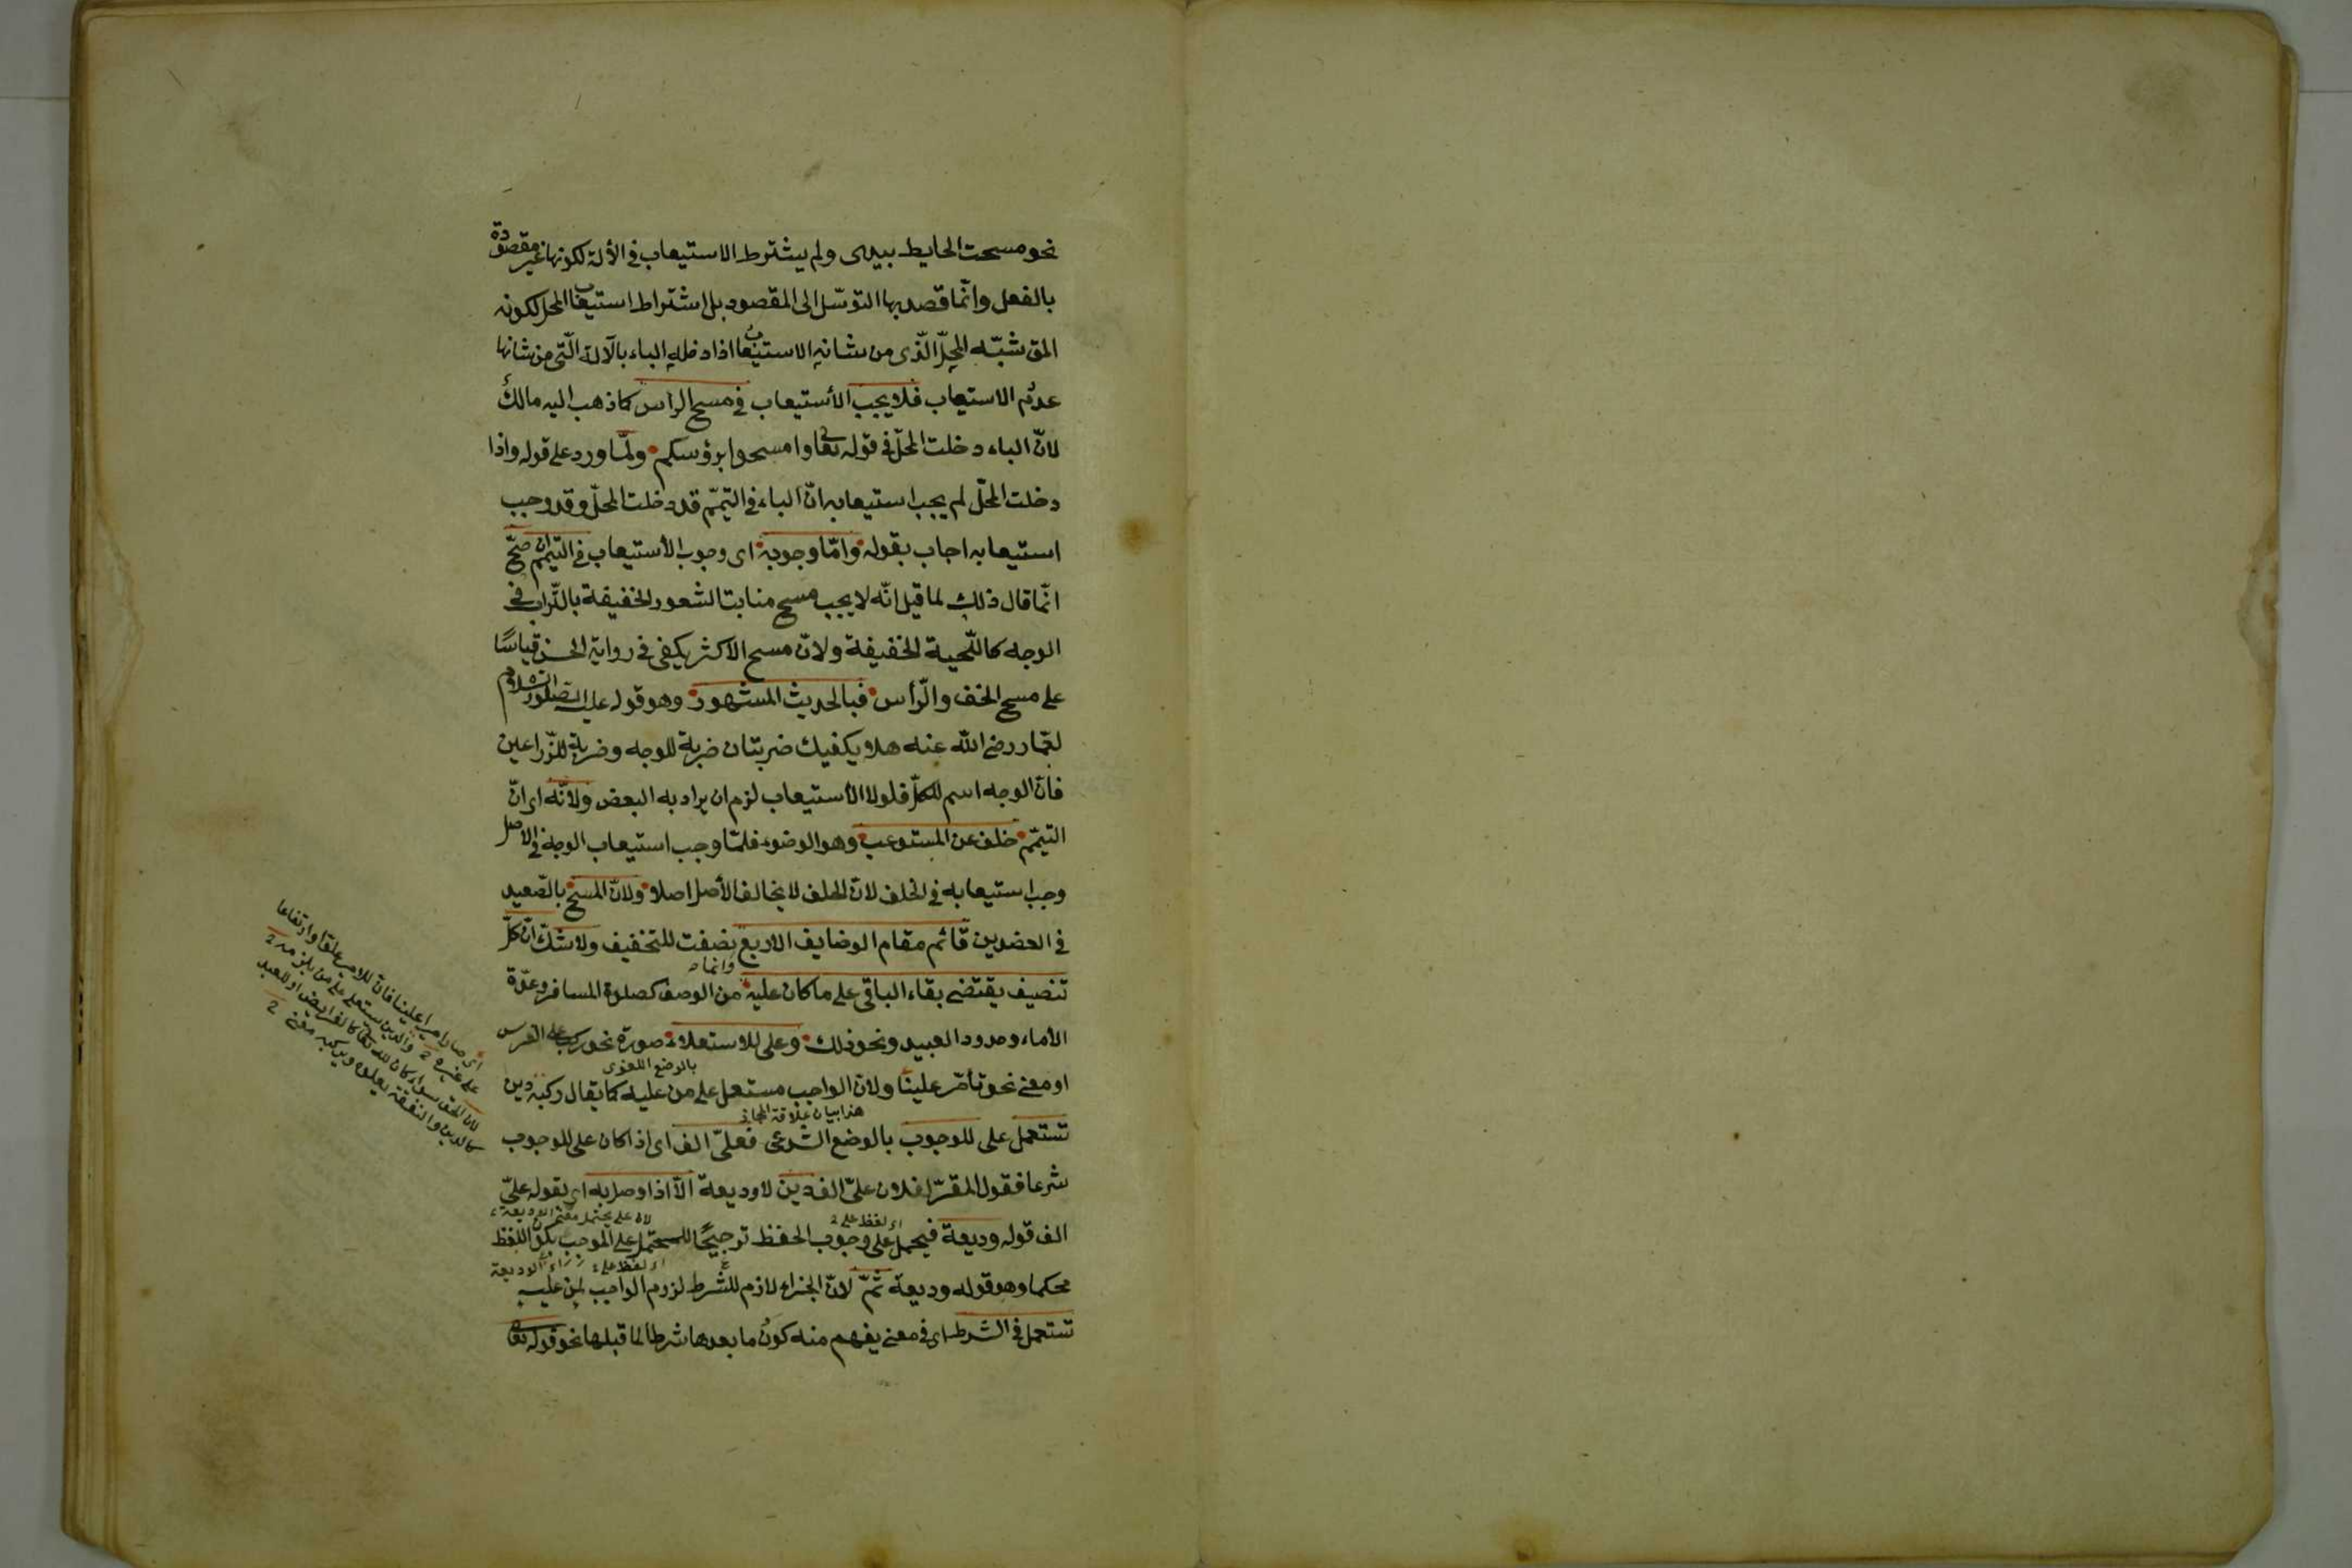 نحو مسحت الحايط بيدى ولم يشترط الاستيعاب فى الألة لكونها غير مقصودة
بالفعل وانّما قصد بها التوسّل الى المقصود بل اشتراط استيعاب المحل لكونه
المق شبّه المحلّ الّذى من شانه الاستيعاب اذا دخله الباء بالآلة الّتى من شانها
عدم الاستيعاب فلا يجب الأستيعاب فى مسح الرأس كما ذهب اليه مالك
لانّ الباء دخلت المحلّ فى قوله تعا وامسحوا برؤسكم ولمّا ورد على قوله واذا
دخلت المحلّ لم يجب استيعابه انّ الباء فى التيمّم قد دخلت المحلّ وقد وجب
استيعابه اجاب بقوله وامّا وجوبه اى وجوب الأستيعاب فى التيمّم ان صحّ
انّما قال ذلك لما قيل انّه لا يجب مسح منابت الشعور الخفيفة بالتّراب فى
الوجه كاللّحية الخفيفة ولانّ مسح الاكثر يكفى فى رواية الحسن قياسًا
على مسح الخف والرّأس فبالحديث المشهور وهو قوله عليه الصّلوة والسّلام
لعمّار رضى اللّه عنه هلا يكفيك ضربتان ضربة للوجه وضربة للذّراعين
فانّ الوجه اسم للكلّ فلولا الأستيعاب لزم ان يراد به البعض ولانّه اى انّ
التيمّم خلف عن المستوعب وهو الوضوء فلمّا وجب استيعاب الوجه فى الاصل
وجب استيعابه فى الخلف لانّ الخلف لا يخالف الأصل اصلا ولانّ المسح بالصّعيد
فى العضوين قائم مقام الوضايف الاربع نصفت للتخفيف ولا شكّ انّ كلّ
تنصيف يقتضى بقاء الباقى على ما كان عليه من الوصف كصلوة المسافر وعدّة
الأماء وحدود العبيد ونحو ذلك وعلى للاستعلاء صورة نحو ركب على الفرس
بالوضع اللغوى
او معنى نحو تأمّر علينا ولانّ الواجب مستعل على من عليه كما يقال ركبه دين
هذا بيان علاقة المجاز
تستعمل على للوجوب بالوضع الشّرعى فعلىّ الف اى اذا كان على للوجوب
شرعا فقول المقرّ لفلان علىّ الف دين لا وديعة الّا اذا وصل به اى بقوله علىّ
اى لفظ على
الف قوله وديعة فيحمل على وجوب الحفظ ترجيحًا للمحتمل على الموجب لكون اللفظ
محكما وهو قوله وديعة ثمّ لانّ الجزاء لازم للشّرط لزوم الواجب لمن عليه
تستعمل فى الشّرط اى فى معنى يفهم منه كون ما بعدها شرطا لما قبلها نحو قوله تعا
اى صار اميرا علينا فانّ للامير علوّا وارتفاعا
على غيره والدين يستعلى على من يلزمه
لان الحق سواء كان لله تعا كالفرايض او للعبد
كالدين والنفقة يعلوه ويركبه معنى